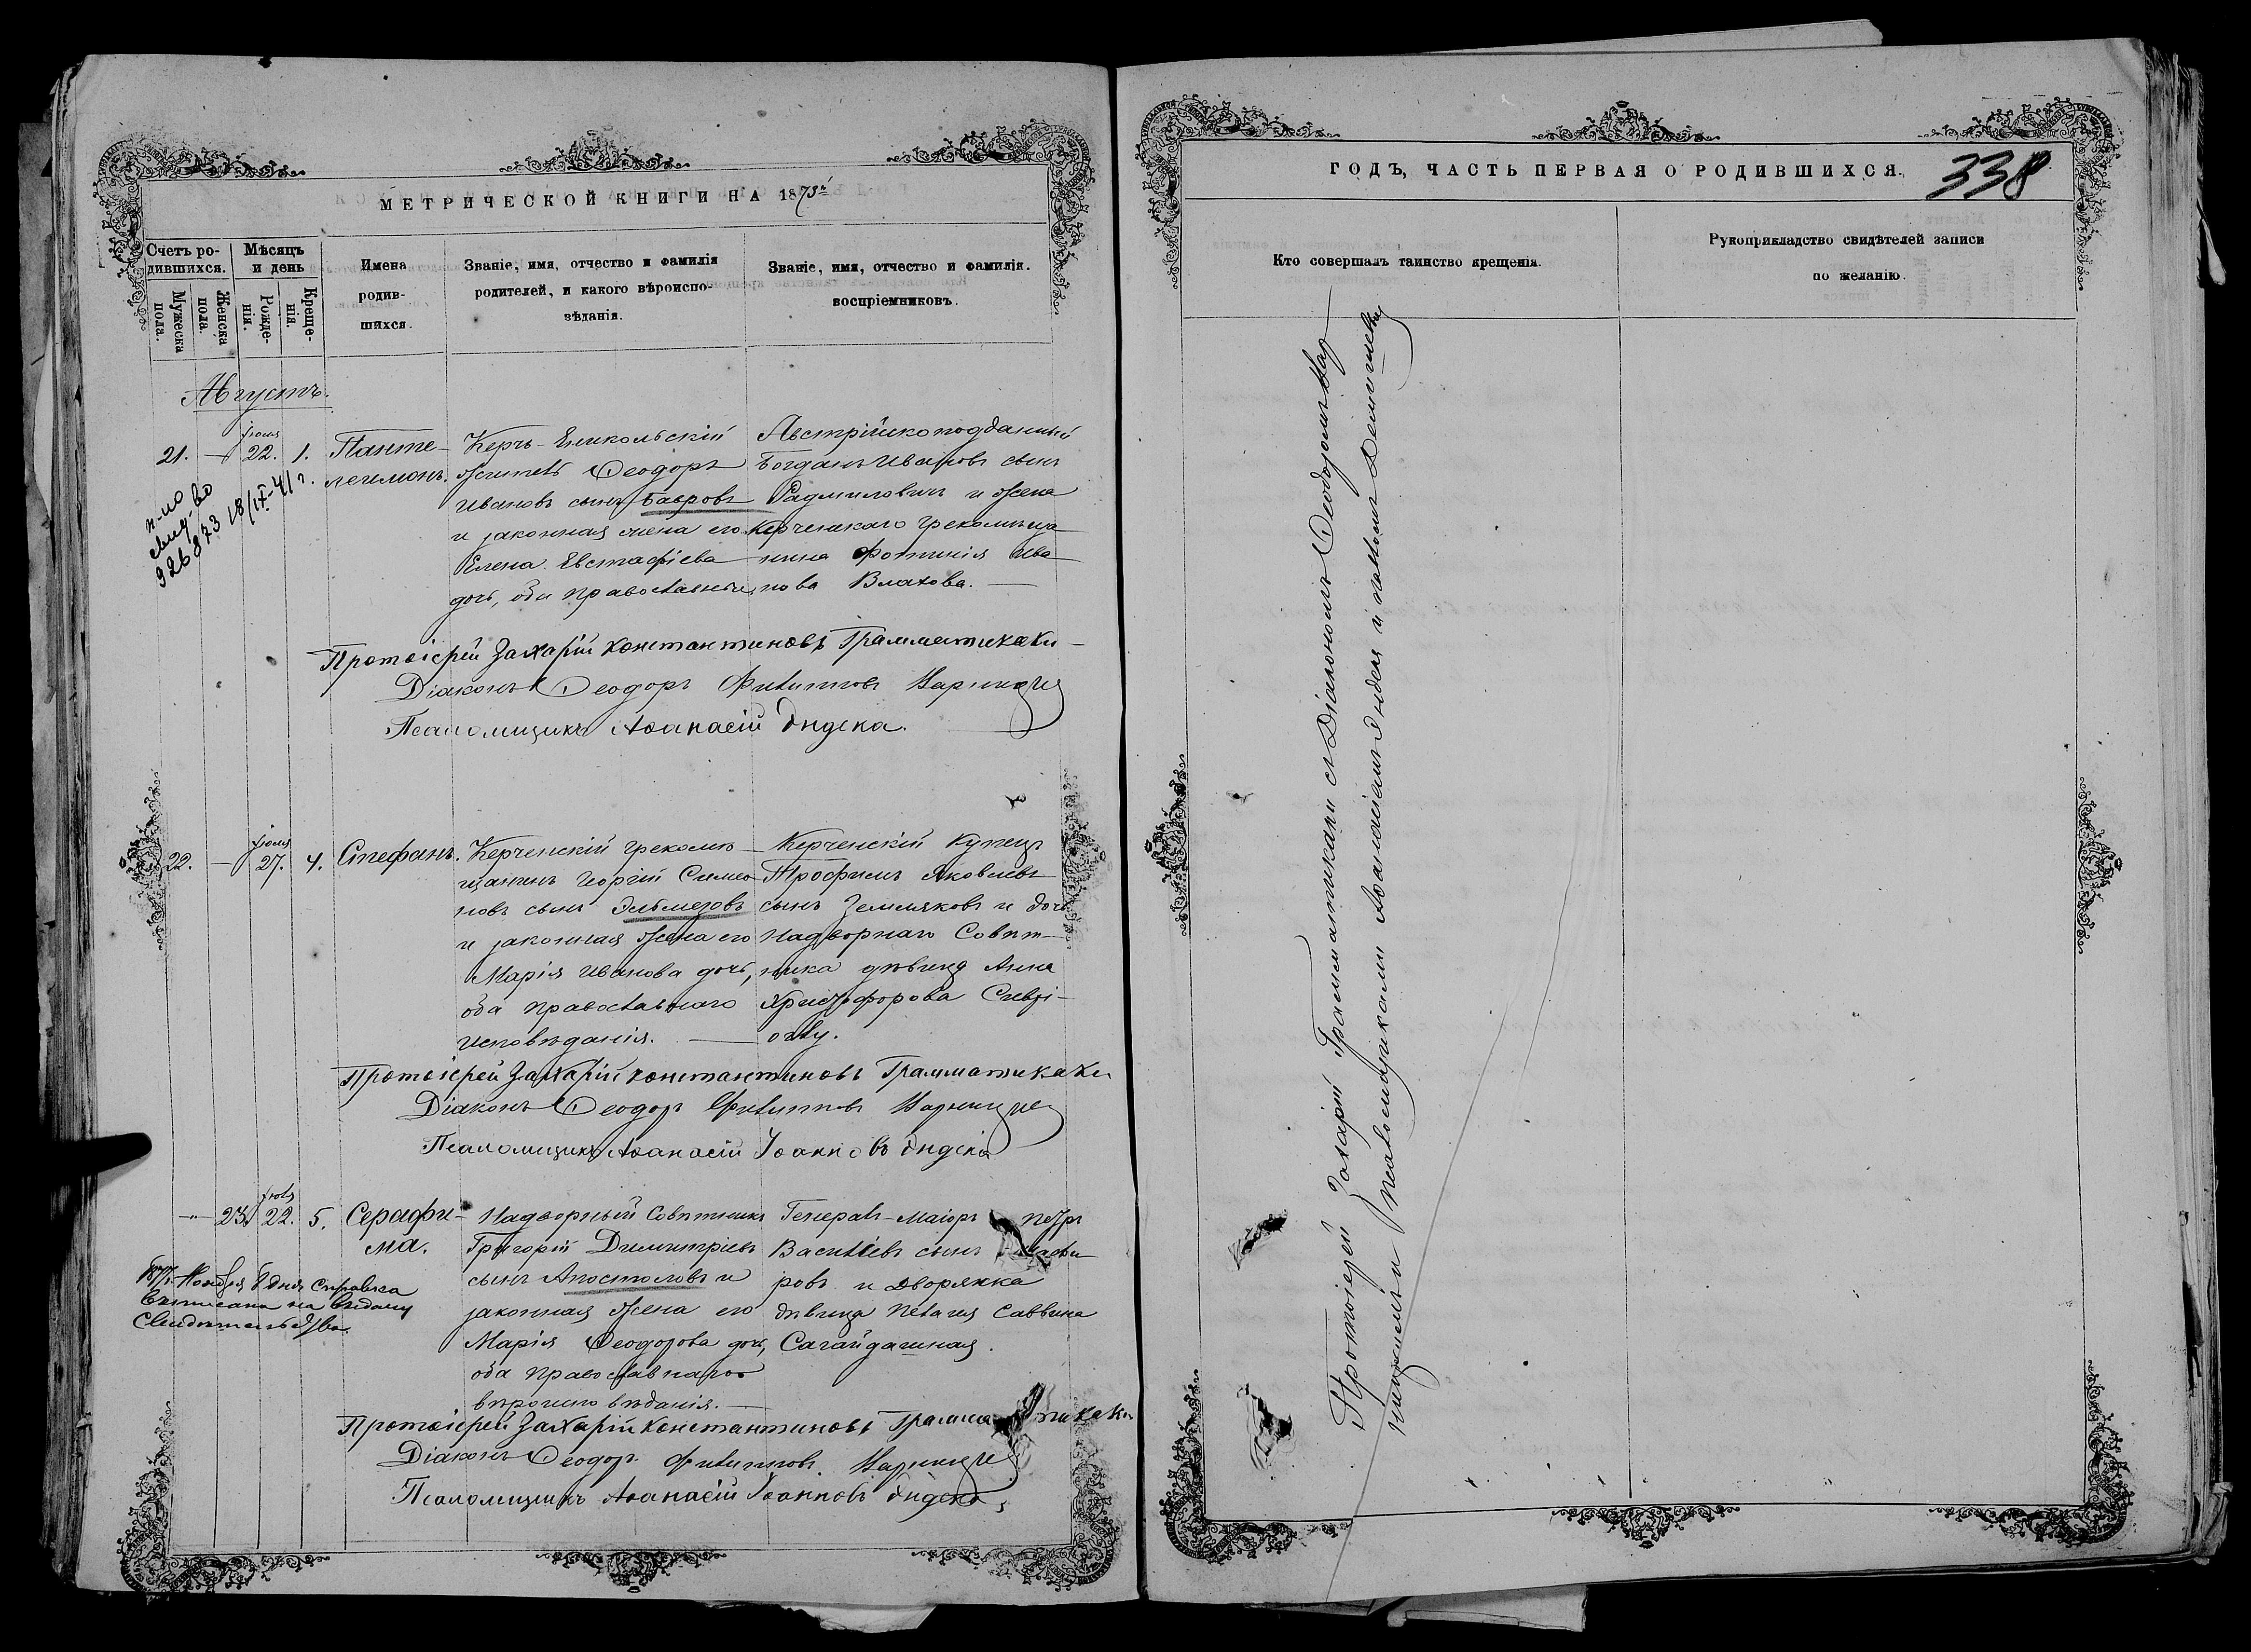 МЕТРИЧЕСКОЙ КНИГИ НА 1873й
Счетъ ро-
дившихся.
Мужеска
пола.
Женска
пола.
Мѣсяцъ
и день
Рожде-
нія.
Креще-
нія.
Имена
родив-
шихся.
Званіе, имя, отчество и фамилія
родителей, и какого вѣроиспо-
вѣданія.
Званіе, имя, отчество и фамилія.
воспріемниковъ.
Августъ.
21. — Іюля 22. 1.
Панте-
леимонъ.
Керчь-Еникольскій
житель Ѳеодоръ
Ивановъ сынъ Бавровъ
и законная жена его
Елена Евстафіева
дочь, оба православные
Австрійскоподданный
Богданъ Ивановъ сынъ
Радмиловичъ и жена
Керченскаго грекомѣща-
нина Фотинія Ива-
нова Влахова.
926873 18/IX-41 г.
Протоіерей Захарій Константиновъ Грамматикаки
Діаконъ Ѳеодоръ Филипповъ
Псаломщикъ Аѳанасій Индека.
22. — Іюля 27. 4.
Стефанъ.
Керченскій грекомѣ-
щанинъ Георгій Симео-
новъ сынъ Эльмезовъ
и законная жена его
Марія Иванова дочь,
оба православнаго
исповѣданія.
Керченскій Купецъ
Трофимъ Яковлевъ
сынъ Земляковъ и дочь
Надворнаго Совѣт-
ника дѣвица Анна
Христофорова
Протоіерей Захарій Константиновъ Грамматикаки
Діаконъ Ѳеодоръ Филипповъ
Псаломщикъ Аѳанасій Іоанновъ Индека
— 23. Іюля 22. 5.
Серафи-
ма.
Надворный Совѣтникъ
Григорій Димитріевъ
сынъ Апостоловъ и
законная жена его
Марія Ѳеодорова дочь,
оба православнаго
вѣроисповѣданія.
Генералъ-Маіоръ Петръ
Василіевъ сынъ
ровъ и Дворянка
дѣвица Пелагія Саввина
Сагайдашная.
Ноября 8 дня справка
выписана на выдачу
Свидѣтельства.
Протоіерей Захарій Константиновъ Грамматикаки
Діаконъ Ѳеодоръ Филипповъ
Псаломщикъ Аѳанасій Іоанновъ Индека
ГОДЪ, ЧАСТЬ ПЕРВАЯ О РОДИВШИХСЯ.
338
Кто совершалъ таинство крещенія.
Рукоприкладство свидѣтелей записи
по желанію.
Протоіерей Захарій Грамматикаки съ Діакономъ Ѳеодоромъ
и псаломщиками Аѳанасіемъ Индекая и